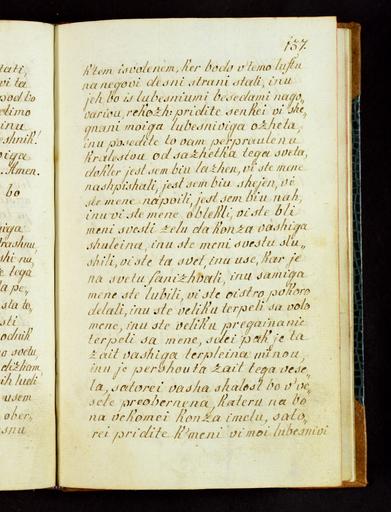 137.
tati,
vi ta
pod bo
delimo
inu
eshnik!
viga
Amen.
bo
niga
drashnu
shi na,
tega
la pe,
sta to,
sti
odnik
no svetu,
disham
ih ludi
usem
ober,
esnu
k'tem isvolenem, ker bodo v'temo luftu
na negovi desni strani stali, inu
jeh bo is lubesniumi besedami nago,
variou, rekozh: pridite semkei vi she,
gnani moiga lubesniviga ozheta,
inu posedite to vam perpraulenu
kralestou od sazhetka tega sveta,
dokler jest sem biu lazhen, vi ste mene
nashpishali, jest sem biu shejen, vi
ste mene napoili, jest sem biu nah,
inu vi ste mene oblekli, vi ste bli
meni svesti zelu da konza vashiga
shuleina, inu ste meni svestu slu,
shili, vi ste ta svet, inu use, kar je
na svetu sanizhvali, inu samiga
mene ste lubili, vi ste oistro pokoro
delali, inu ste veliku terpeli sa volo
mene, inu ste veliku pregainanie
terpeli sa mene, sdei pak je ta
zait vashiga terpleina minou,
inu je pershouta zait tega vese,
la, satorei vasha shalost bo v've,
sele preobernena, kateru na bo
na vekomei konza imelu, sato,
rei pridite k'meni vi moi lubesnivi